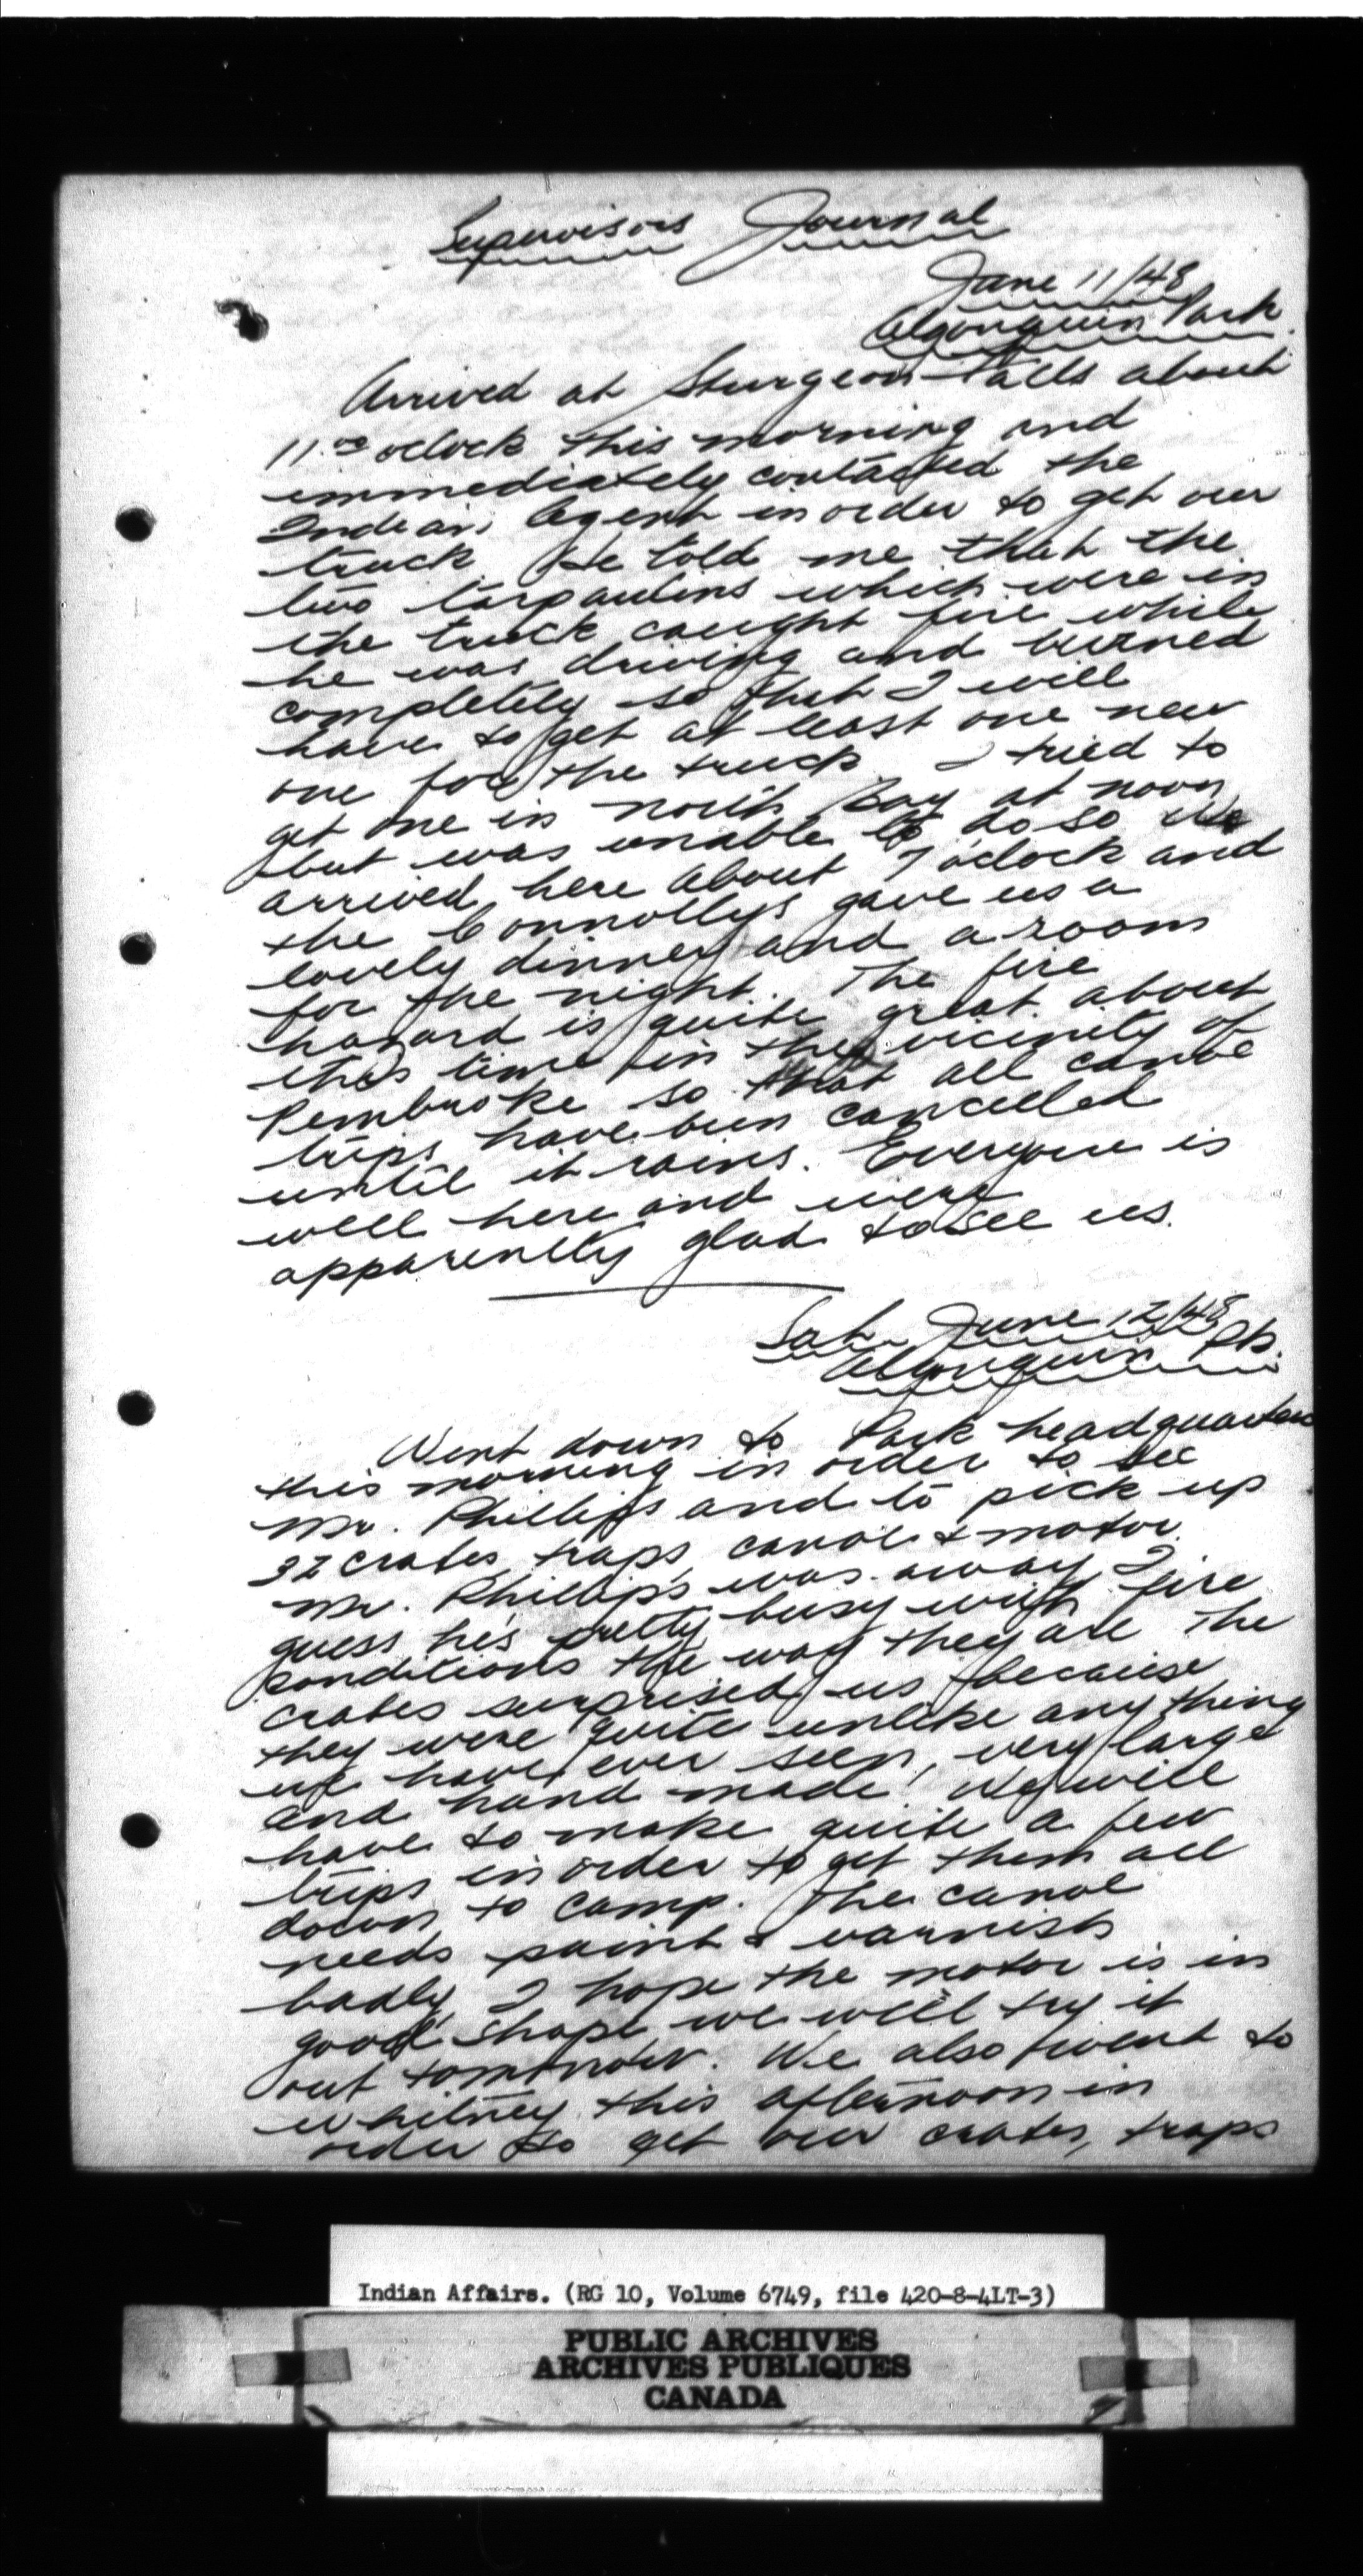 Supervisors Journal
June 11/48
Algonquin Park.
Arrived at Sturgeon Falls about
11 oclock this morning and
immediately contacted the
Indian Agent in order to get our
truck. He told me that the
two tarpaulins which were in
the truck caught fire while
he was driving and burned
completely so that I will
have to get at least one new
one for the truck. I tried to
get one in north Bay at noon
but was unable to do so. We
arrived here about 7 o'clock and
the Connollys gave us a
lovely dinner and a room
for the night. The fire
hazard is quite great about
this time in the vicinity of
Pembroke so that all canoe
trips have been cancelled
until it rains. Everyone is
well here and were
apparently glad to see us.
Sat. June 12/48
Algonquin Pk.
Went down to Park headquarters
this morning in order to see
Mr. Phillips and to pick up
32 crates, traps, canoe & motor.
Mr. Phillips was away, I
guess he's pretty busy with fire
conditions the way they are. The
crates surprised us because
they were quite unlike any thing
we have ever seen, very large
and hand made. We will
have to make quite a few
trips in order to get them all
down to camp. The canoe
needs paint & varnish
badly. I hope the motor is in
good shape we will try it
out tomorrow. We also went to
Whitney this afternoon in
order to get our crates, traps
Indian Affairs. (RG 10, Volume 6749, file 420-8-4LT-3)
PUBLIC ARCHIVES
ARCHIVES PUBLIQUES
CANADA